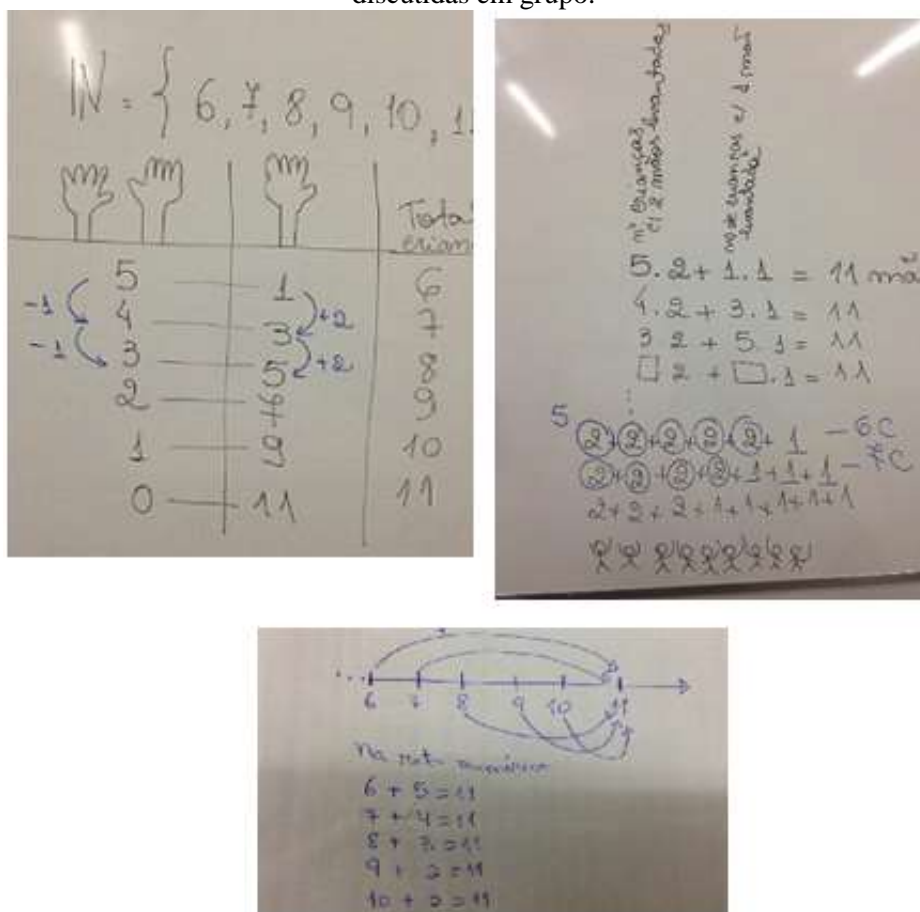 discutidas em grupo.
IN = { 6, 7, 8, 9, 10, 1
Tota
crian
5 1 6
-1 4 3 +2 7
-1 3 5 +2 8
2 9
1 9 10
0 11 11
nº crianças
c/ 2 mãos levantadas
nº de crianças c/ 1 mão
levantada
5.2 + 1.1 = 11 mã
4.2 + 3.1 = 11
3 2 + 5.1 = 11
□ 2 + □.1 = 11
⋮
5
2+2+2+2+2+ 1 — 6C
2+2+2+2+1+1+1 — 7C
2+2+2+1+1+1+1+1
... 6 7 8 9 10 11
Na numérica
6 + 5 = 11
7 + 4 = 11
8 + 3 = 11
9 + 2 = 11
10 + 2 = 11